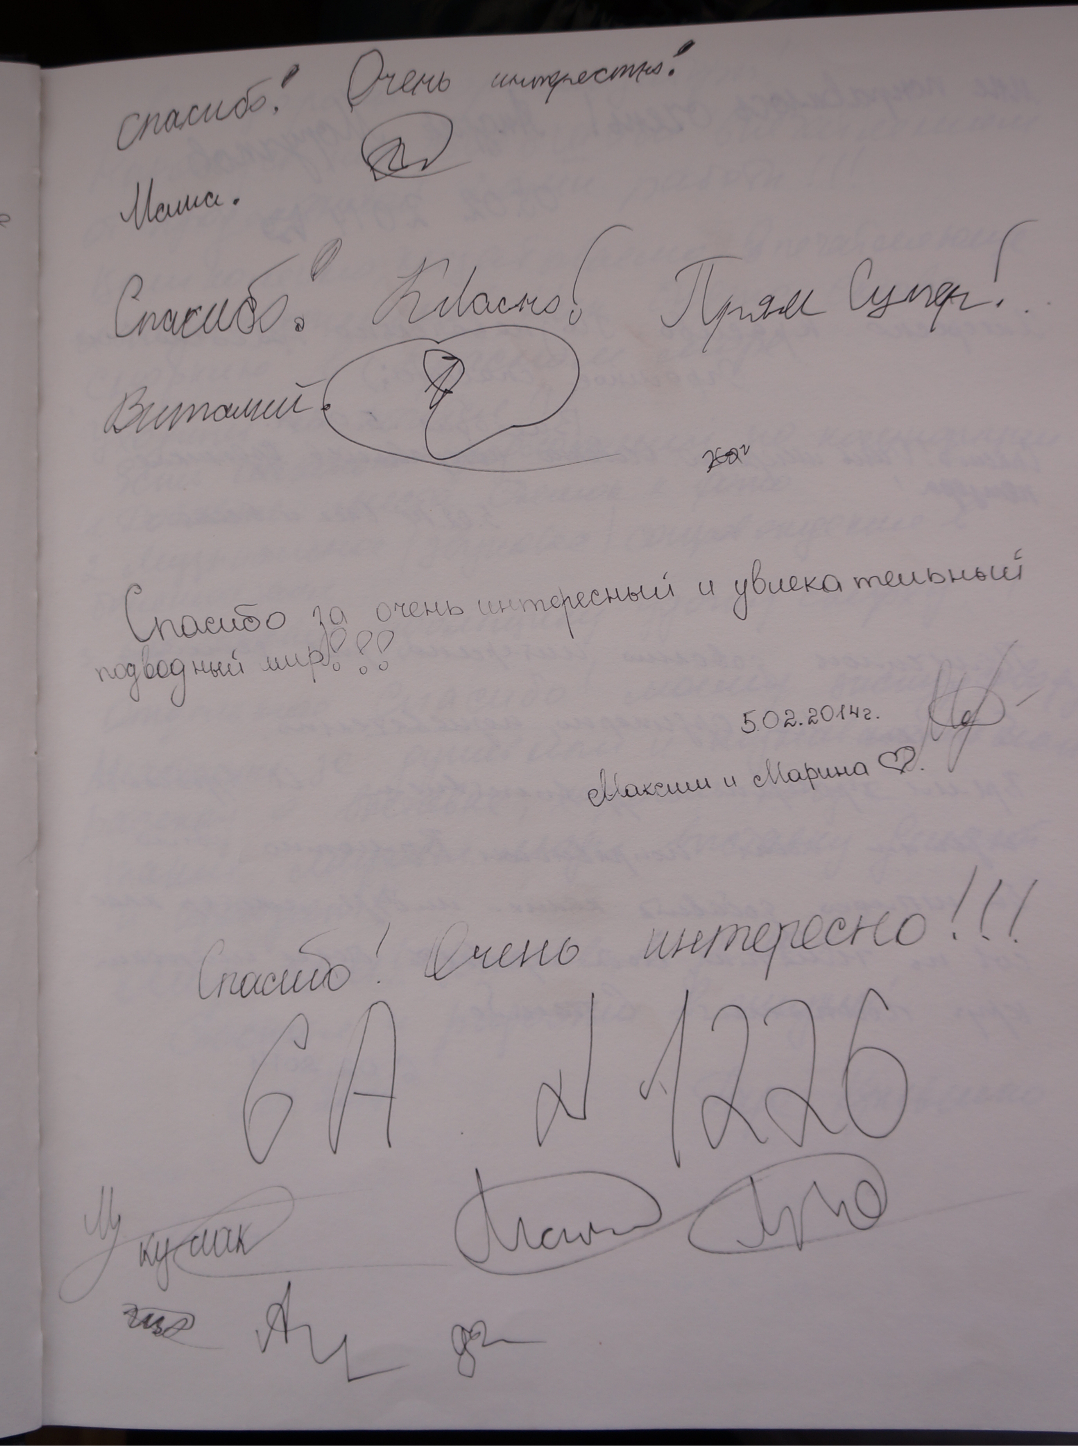 спасибо! Очень интерестно!
Маша.
Спасибо! Класно! Прям Супер!
Виталий.
Спасибо за очень интересный и увлекательный
подводный мир!!!
5.02.2014г.
Максим и Марина
Спасибо! Очень интересно!!!
6А №1226